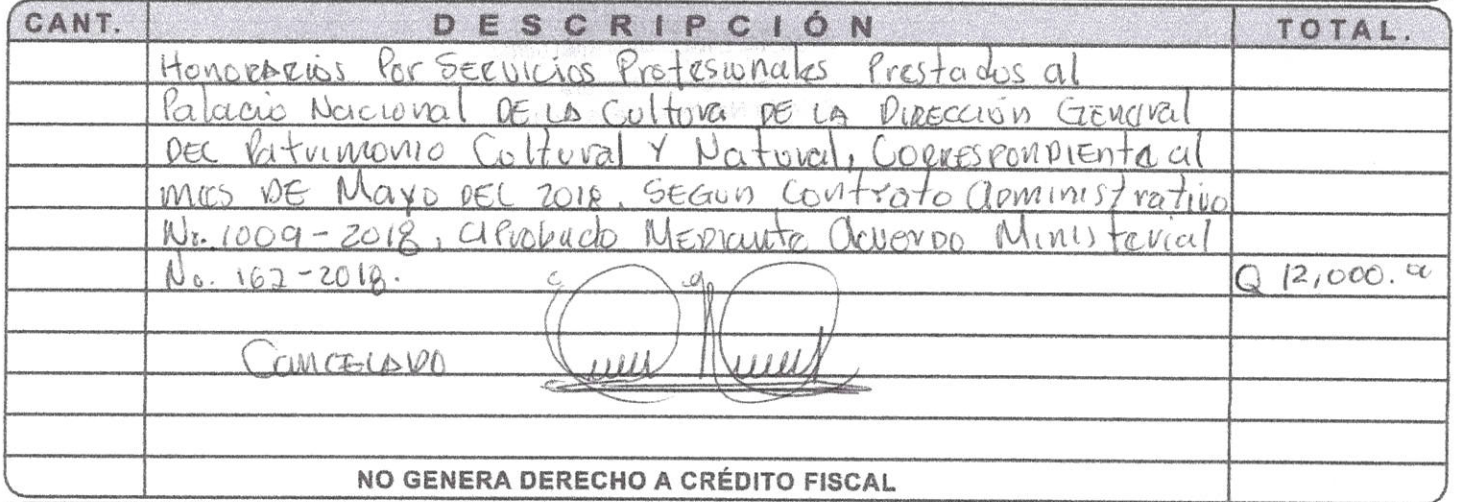 CANT. DESCRIPCIÓN TOTAL.
Honorarios Por Servicios Profesionales Prestados al
Palacio Nacional DE LA Cultura DE LA Dirección General
DEL Patrimonio Cultural Y Natural, Correspondiente al
mes DE Mayo DEL 2018. SEGUN Contrato administrativo
No. 1009-2018, aprobado Mediante acuerdo Ministerial
No. 162-2018. Q 12,000.
CANCELADO
NO GENERA DERECHO A CRÉDITO FISCAL